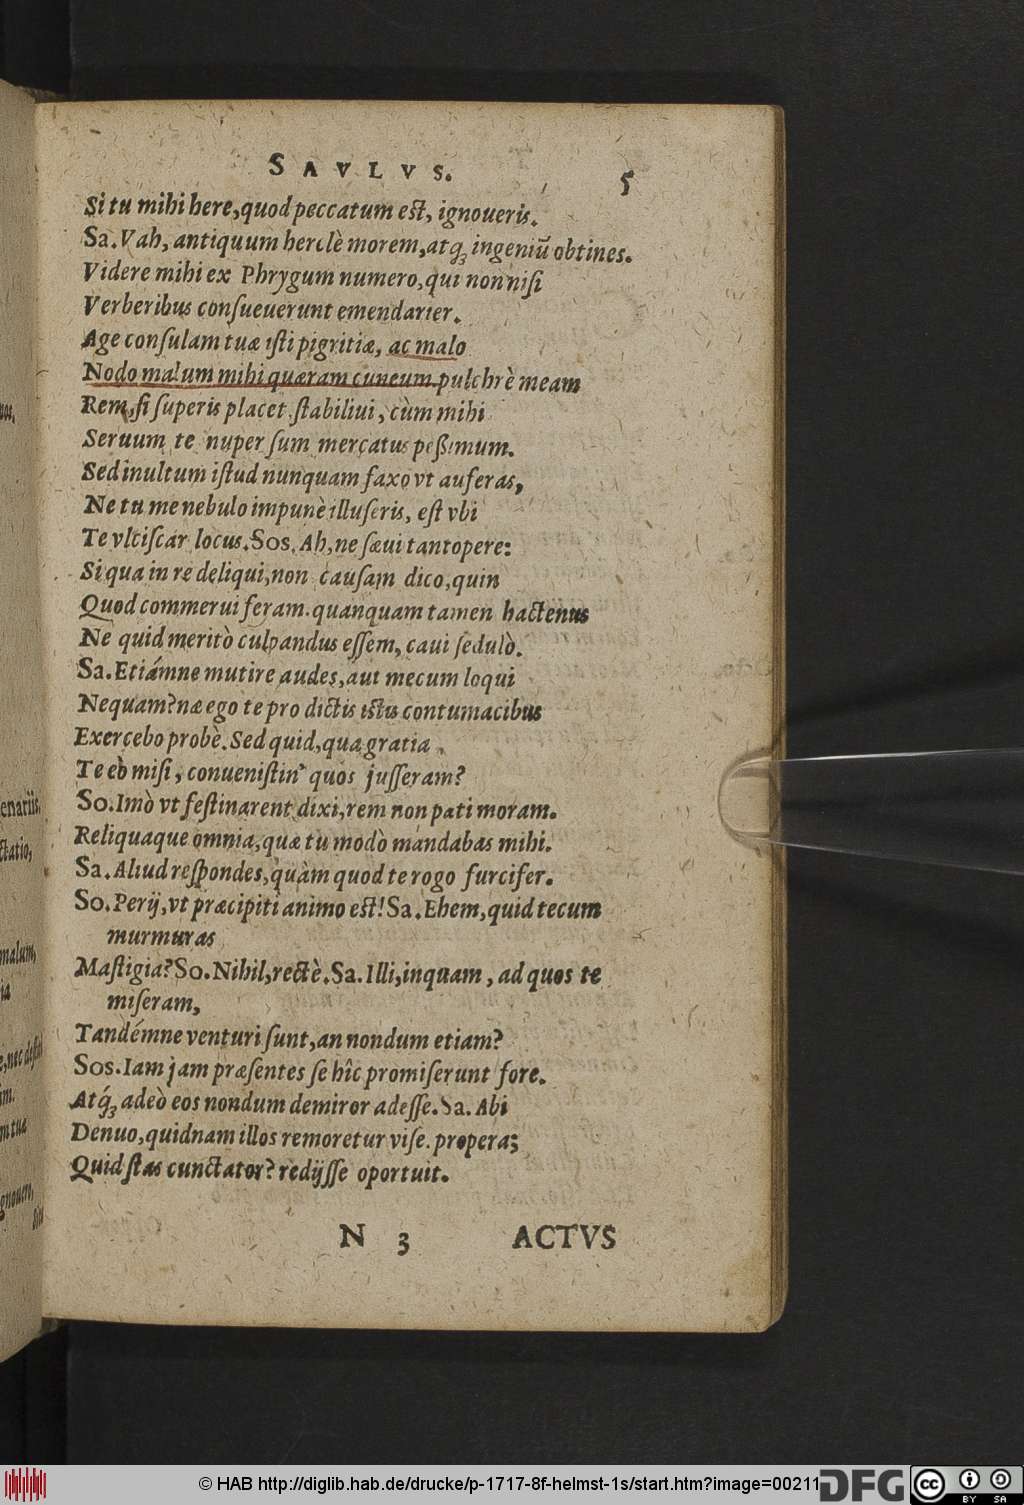 SAVLVS. 5
Si tu mihi here, quod peccatum est, ignoueris.
Sa. Vah, antiquum herclè morem, atq́; ingeniũ obtines.
Videre mihi ex Phrygum numero, qui non nisi
Verberibus consueuerunt emendarier.
Age consulam tuæ isti pigritiæ, ac malo
Nodo malum mihi quæram cuneum. pulchrè meam
Rem, si superis placet stabiliui, cùm mihi
Seruum te nuper sum mercatus peßimum.
Sed inultum istud nunquam faxo vt auferas,
Ne tu me nebulo impunè illuseris, est vbi
Te vlciscar locus. Sos. Ah, ne sæui tantopere:
Si qua in re deliqui, non causam dico, quin
Quod commerui feram. quanquam tamen hactenus
Ne quid meritò culpandus essem, caui sedulò.
Sa. Etiámne mutire audes, aut mecum loqui
Nequam? næ ego te pro dictis istis contumacibus
Exercebo probè. Sed quid, qua gratia
Te eò misi, conuenistin' quos jusseram?
So. Imò vt festinarent dixi, rem non pati moram.
Reliquaque omnia, quæ tu modò mandabas mihi.
Sa. Aliud respondes, quàm quod te rogo furcifer.
So. Perij, vt præcipiti animo est! Sa. Ehem, quid tecum
murmuras
Mastigia? So. Nihil, rectè. Sa. Illi, inquam, ad quos te
miseram,
Tandémne venturi sunt, an nondum etiam?
Sos. Iam jam præsentes se hîc promiserunt fore.
Atq́; adeò eos nondum demiror adesse. Sa. Abi
Denuo, quidnam illos remoretur vise. propera;
Quid stas cunctator? redijsse oportuit.
N 3 ACTVS
enariis,
ctatio,
malum,
© HAB http://diglib.hab.de/drucke/p-1717-8f-helmst-1s/start.htm?image=00211
DFG
cc BY SA